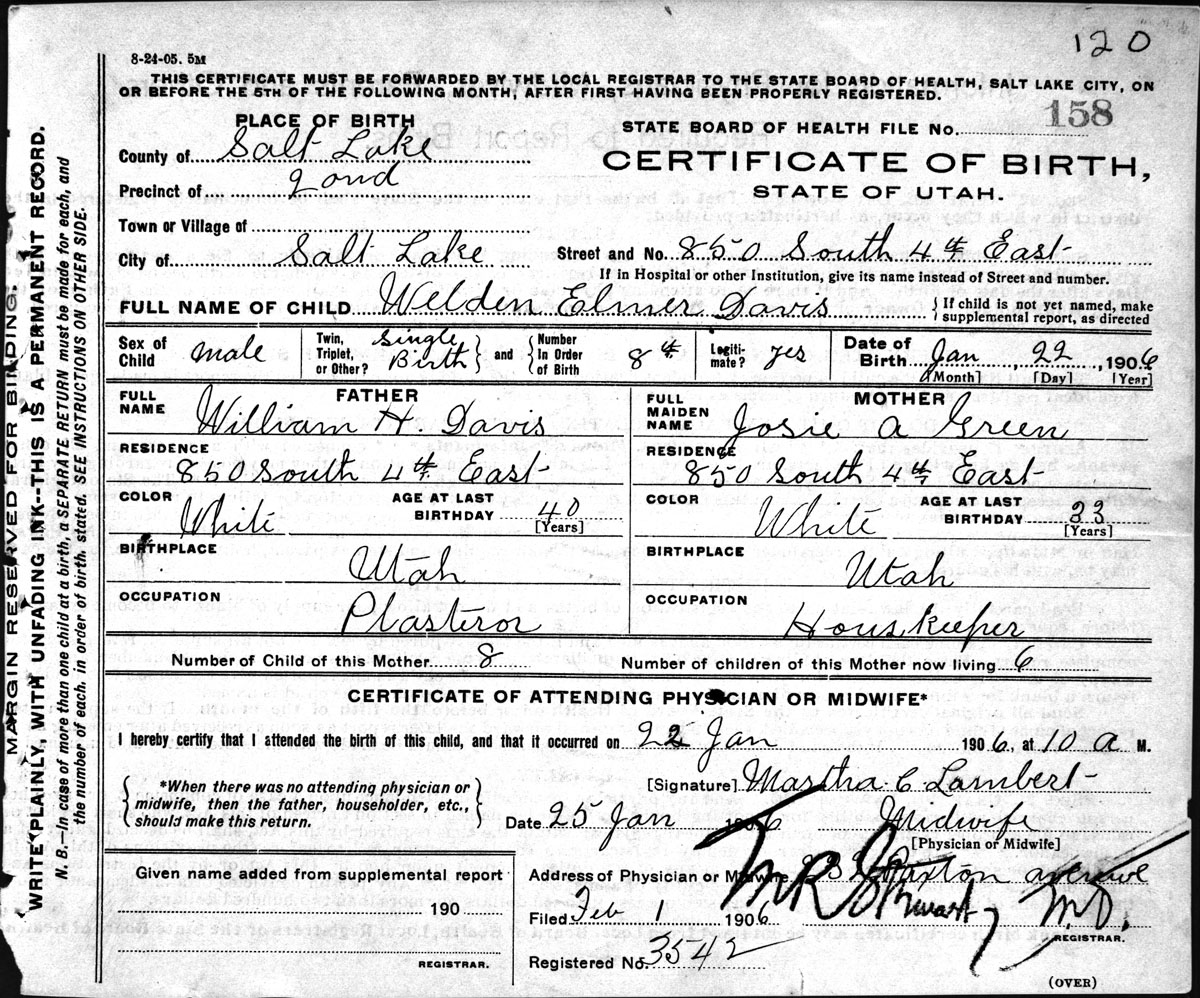 120
8-24-05. 5M
THIS CERTIFICATE MUST BE FORWARDED BY THE LOCAL REGISTRAR TO THE STATE BOARD OF HEALTH, SALT LAKE CITY, ON
OR BEFORE THE 5TH OF THE FOLLOWING MONTH, AFTER FIRST HAVING BEEN PROPERLY REGISTERED.
PLACE OF BIRTH
STATE BOARD OF HEALTH FILE No. 158
County of Salt Lake
CERTIFICATE OF BIRTH,
Precinct of 2ond
STATE OF UTAH.
Town or Village of
City of Salt Lake Street and No. 850 South 4th East
If in Hospital or other Institution, give its name instead of Street and number.
FULL NAME OF CHILD Welden Elmer Davis {If child is not yet named, make supplemental report, as directed
Sex of Child male Twin, Triplet, or Other? Single Birth } and { Number In Order of Birth 8th Legiti-mate? yes Date of Birth Jan 22, 1906
[Month] [Day] [Year]
FATHER
FULL NAME William H Davis
RESIDENCE
850 South 4th East
COLOR White AGE AT LAST BIRTHDAY 40
[Years]
BIRTHPLACE
Utah
OCCUPATION
Plasteror
MOTHER
FULL MAIDEN NAME Josie A Green
RESIDENCE
850 South 4th East
COLOR White AGE AT LAST BIRTHDAY 33
[Years]
BIRTHPLACE
Utah
OCCUPATION
Houskeeper
Number of Child of this Mother 8 Number of children of this Mother now living 6
CERTIFICATE OF ATTENDING PHYSICIAN OR MIDWIFE*
I hereby certify that I attended the birth of this child, and that it occurred on 22 Jan 1906, at 10 A M.
{*When there was no attending physician or
midwife, then the father, householder, etc.,
should make this return.}
[Signature] Martha C Lambert
Date 25 Jan 1906 Midwife
[Physician or Midwife]
Given name added from supplemental report
190
REGISTRAR.
Address of Physician or Midwife Paxton avenue
Filed Feb 1 1906 M.D.
REGISTRAR.
Registered No. 3542
(OVER)
MARGIN RESERVED FOR BINDING.
WRITE PLAINLY, WITH UNFADING INK--THIS IS A PERMANENT RECORD.
N. B.—In case of more than one child at a birth, a SEPARATE RETURN must be made for each, and
the number of each, in order of birth, stated. SEE INSTRUCTIONS ON OTHER SIDE.